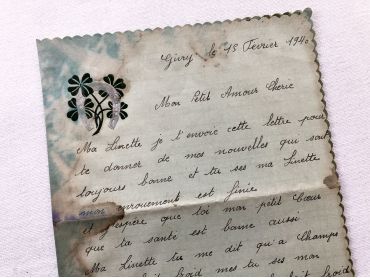 Givry le 18 Fevrier 1940
Mon Petit Amour Cherie
Ma Linette je t'envoie cette lettre pour
te donner de mes nouvelles qui sont
toujours bonne et tu ses ma Linette
mon enrouement est finie
et j'espère que toi mon petit Cœur
que ta santé est bonne aussi
Ma Linette tu me dit qu'a Champs
froid mes tu ses mon
froid